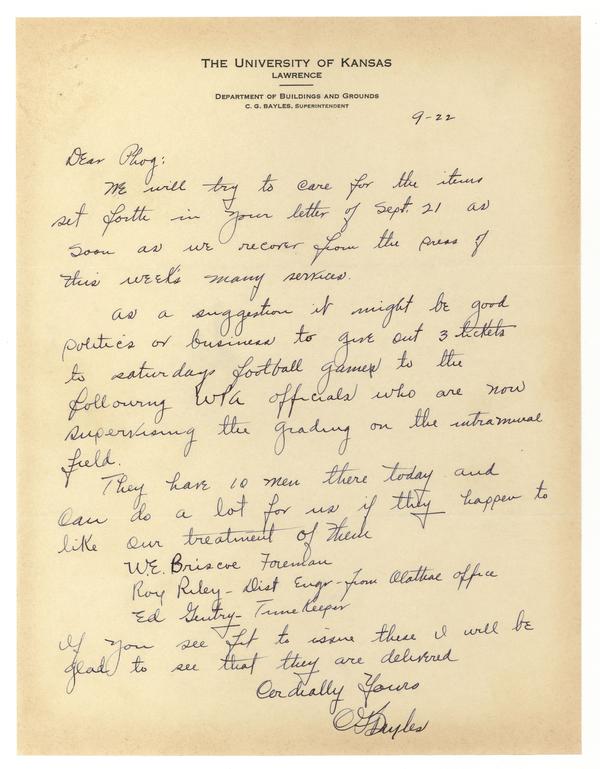 THE UNIVERSITY OF KANSAS
LAWRENCE
DEPARTMENT OF BUILDINGS AND GROUNDS
C. G. BAYLES, SUPERINTENDENT
9-22
Dear Phog:
We will try to care for the items
set forth in your letter of Sept. 21 as
soon as we recover from the press of
this week's many services.
As a suggestion it might be good
politics or business to give out 3 tickets
to saturdays football games to the
following WPA officials who are now
supervising the grading on the intramural
field.
They have 10 men there today and
can do a lot for us if they happen to
like our treatment of them
W.E. Briscoe Foreman
Roy Riley - Dist Engr - from Olathae office
Ed Gentry - Time Keeper
If you see fit to issue these I will be
glad to see that they are delivered
Cordially Yours
CG Bayles